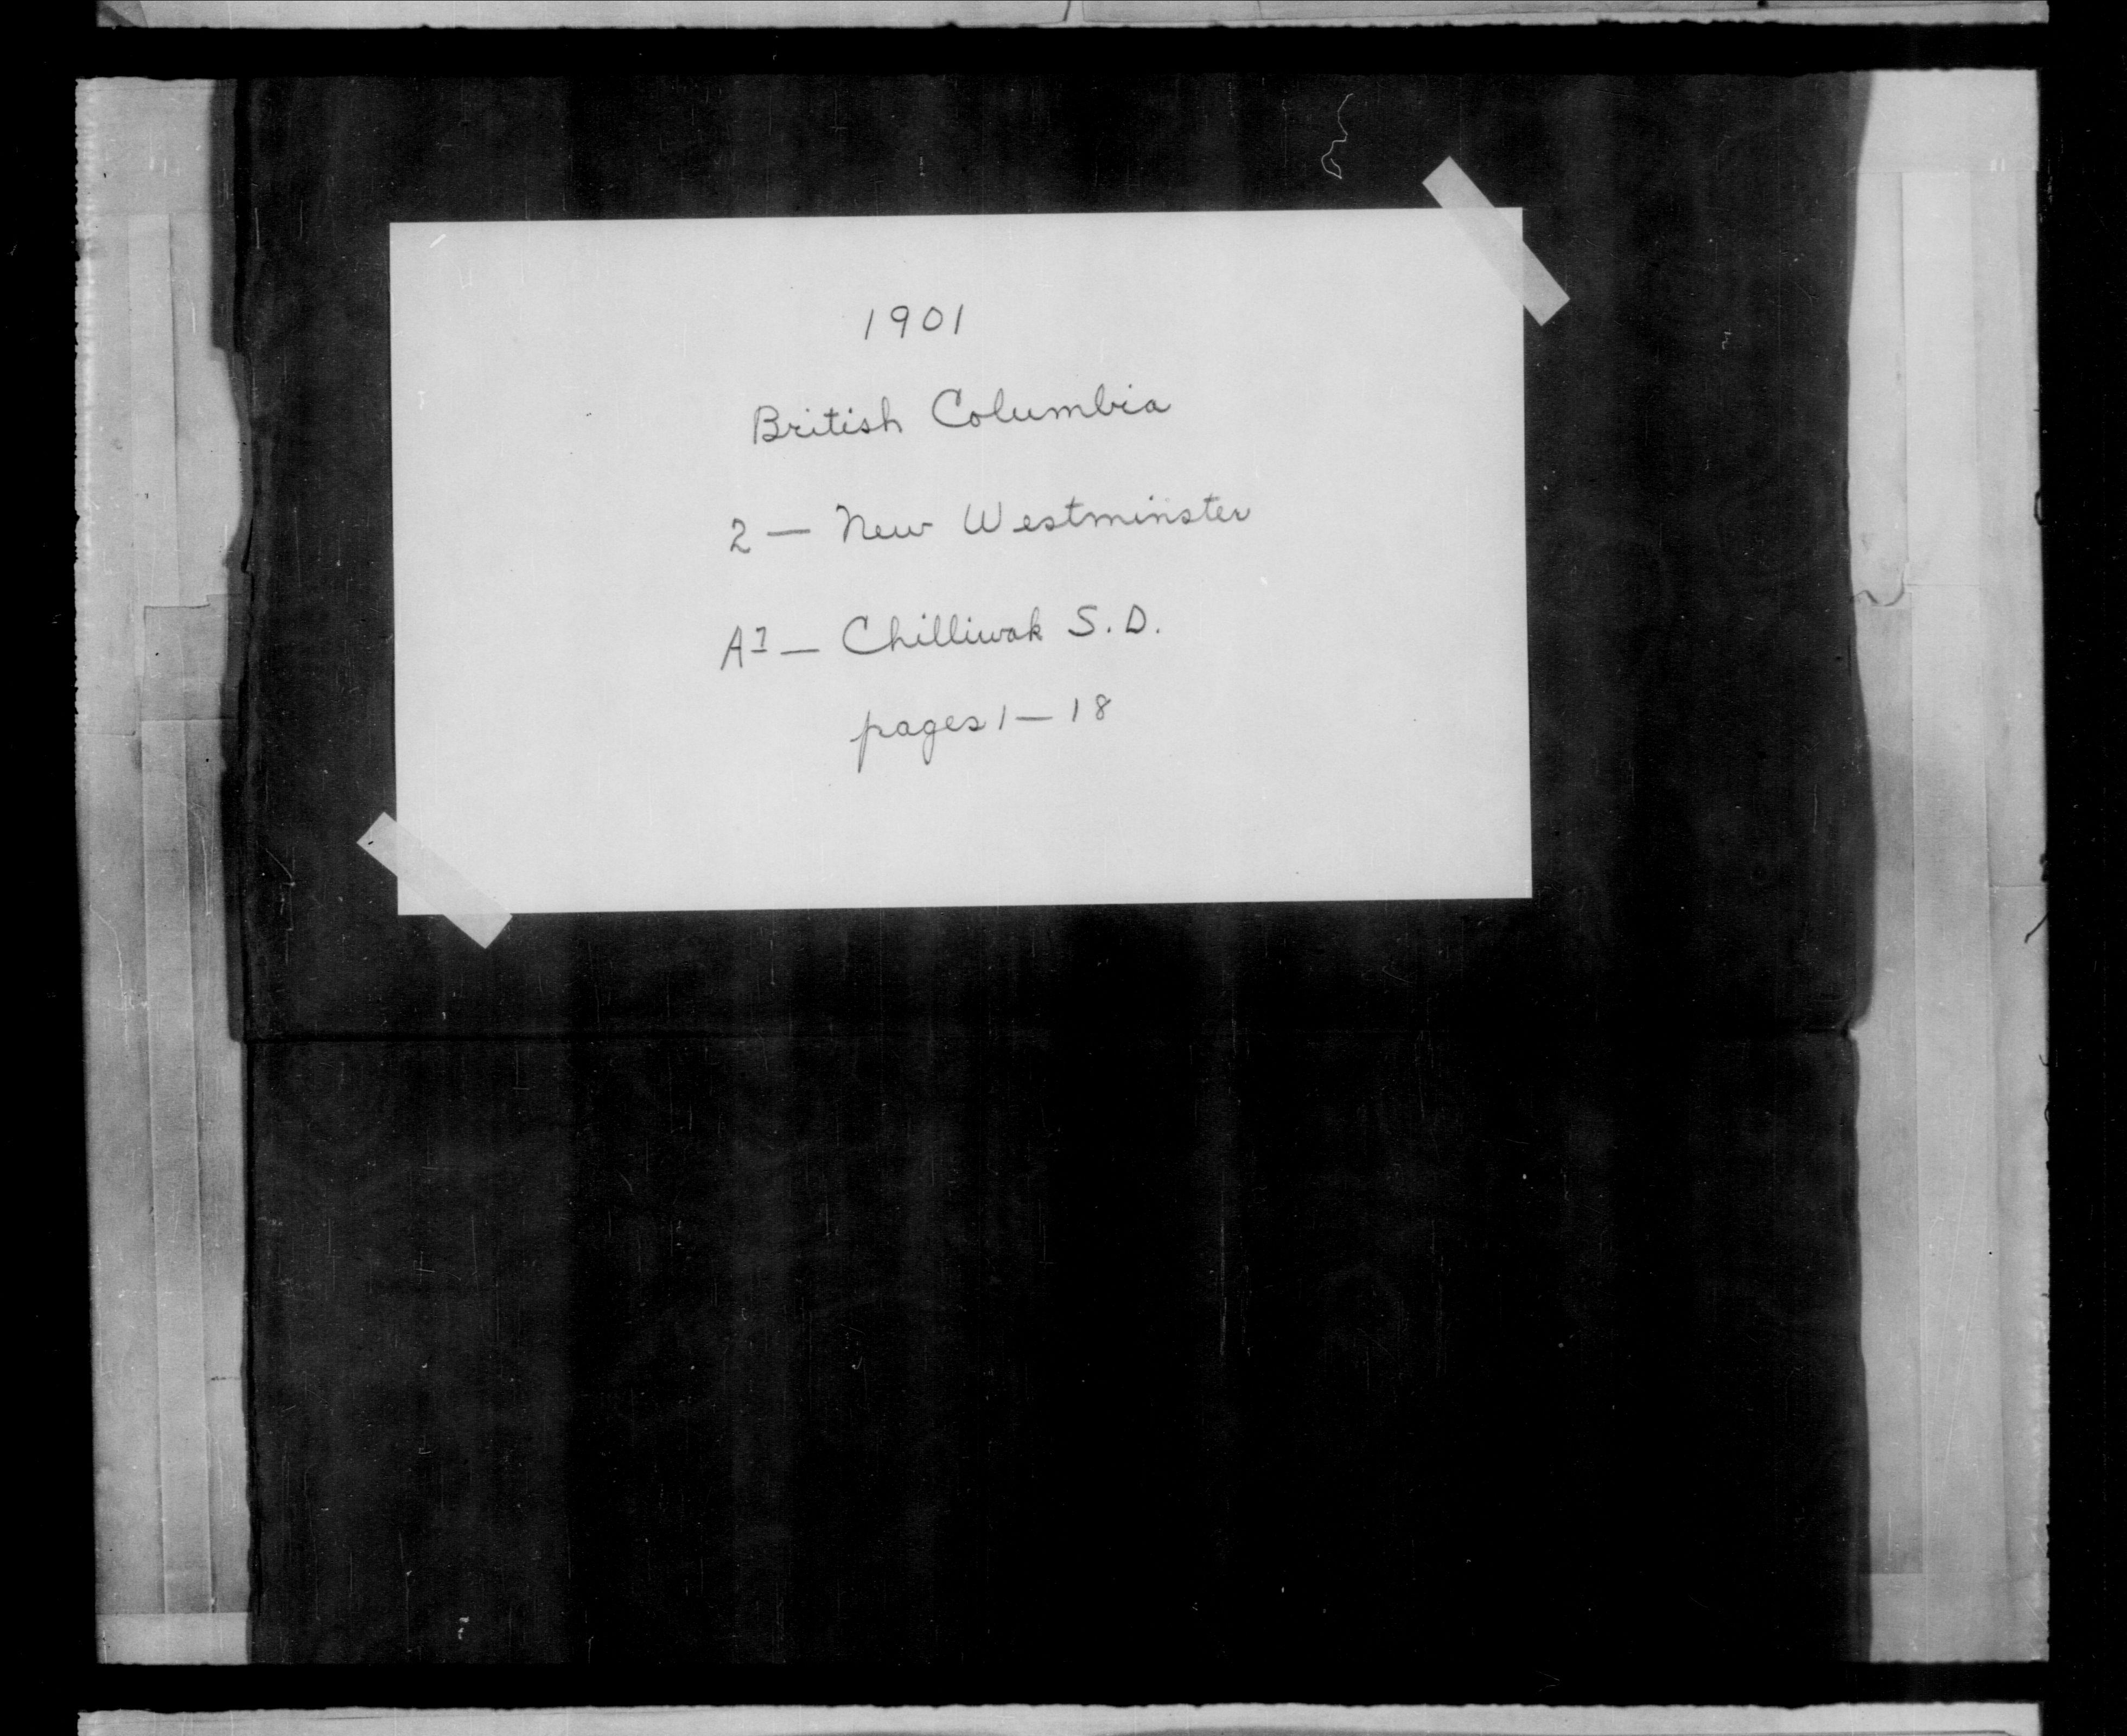 1901
British Columbia
2 — New Westminster
A7 — Chilliwak S.D.
pages 1 — 18